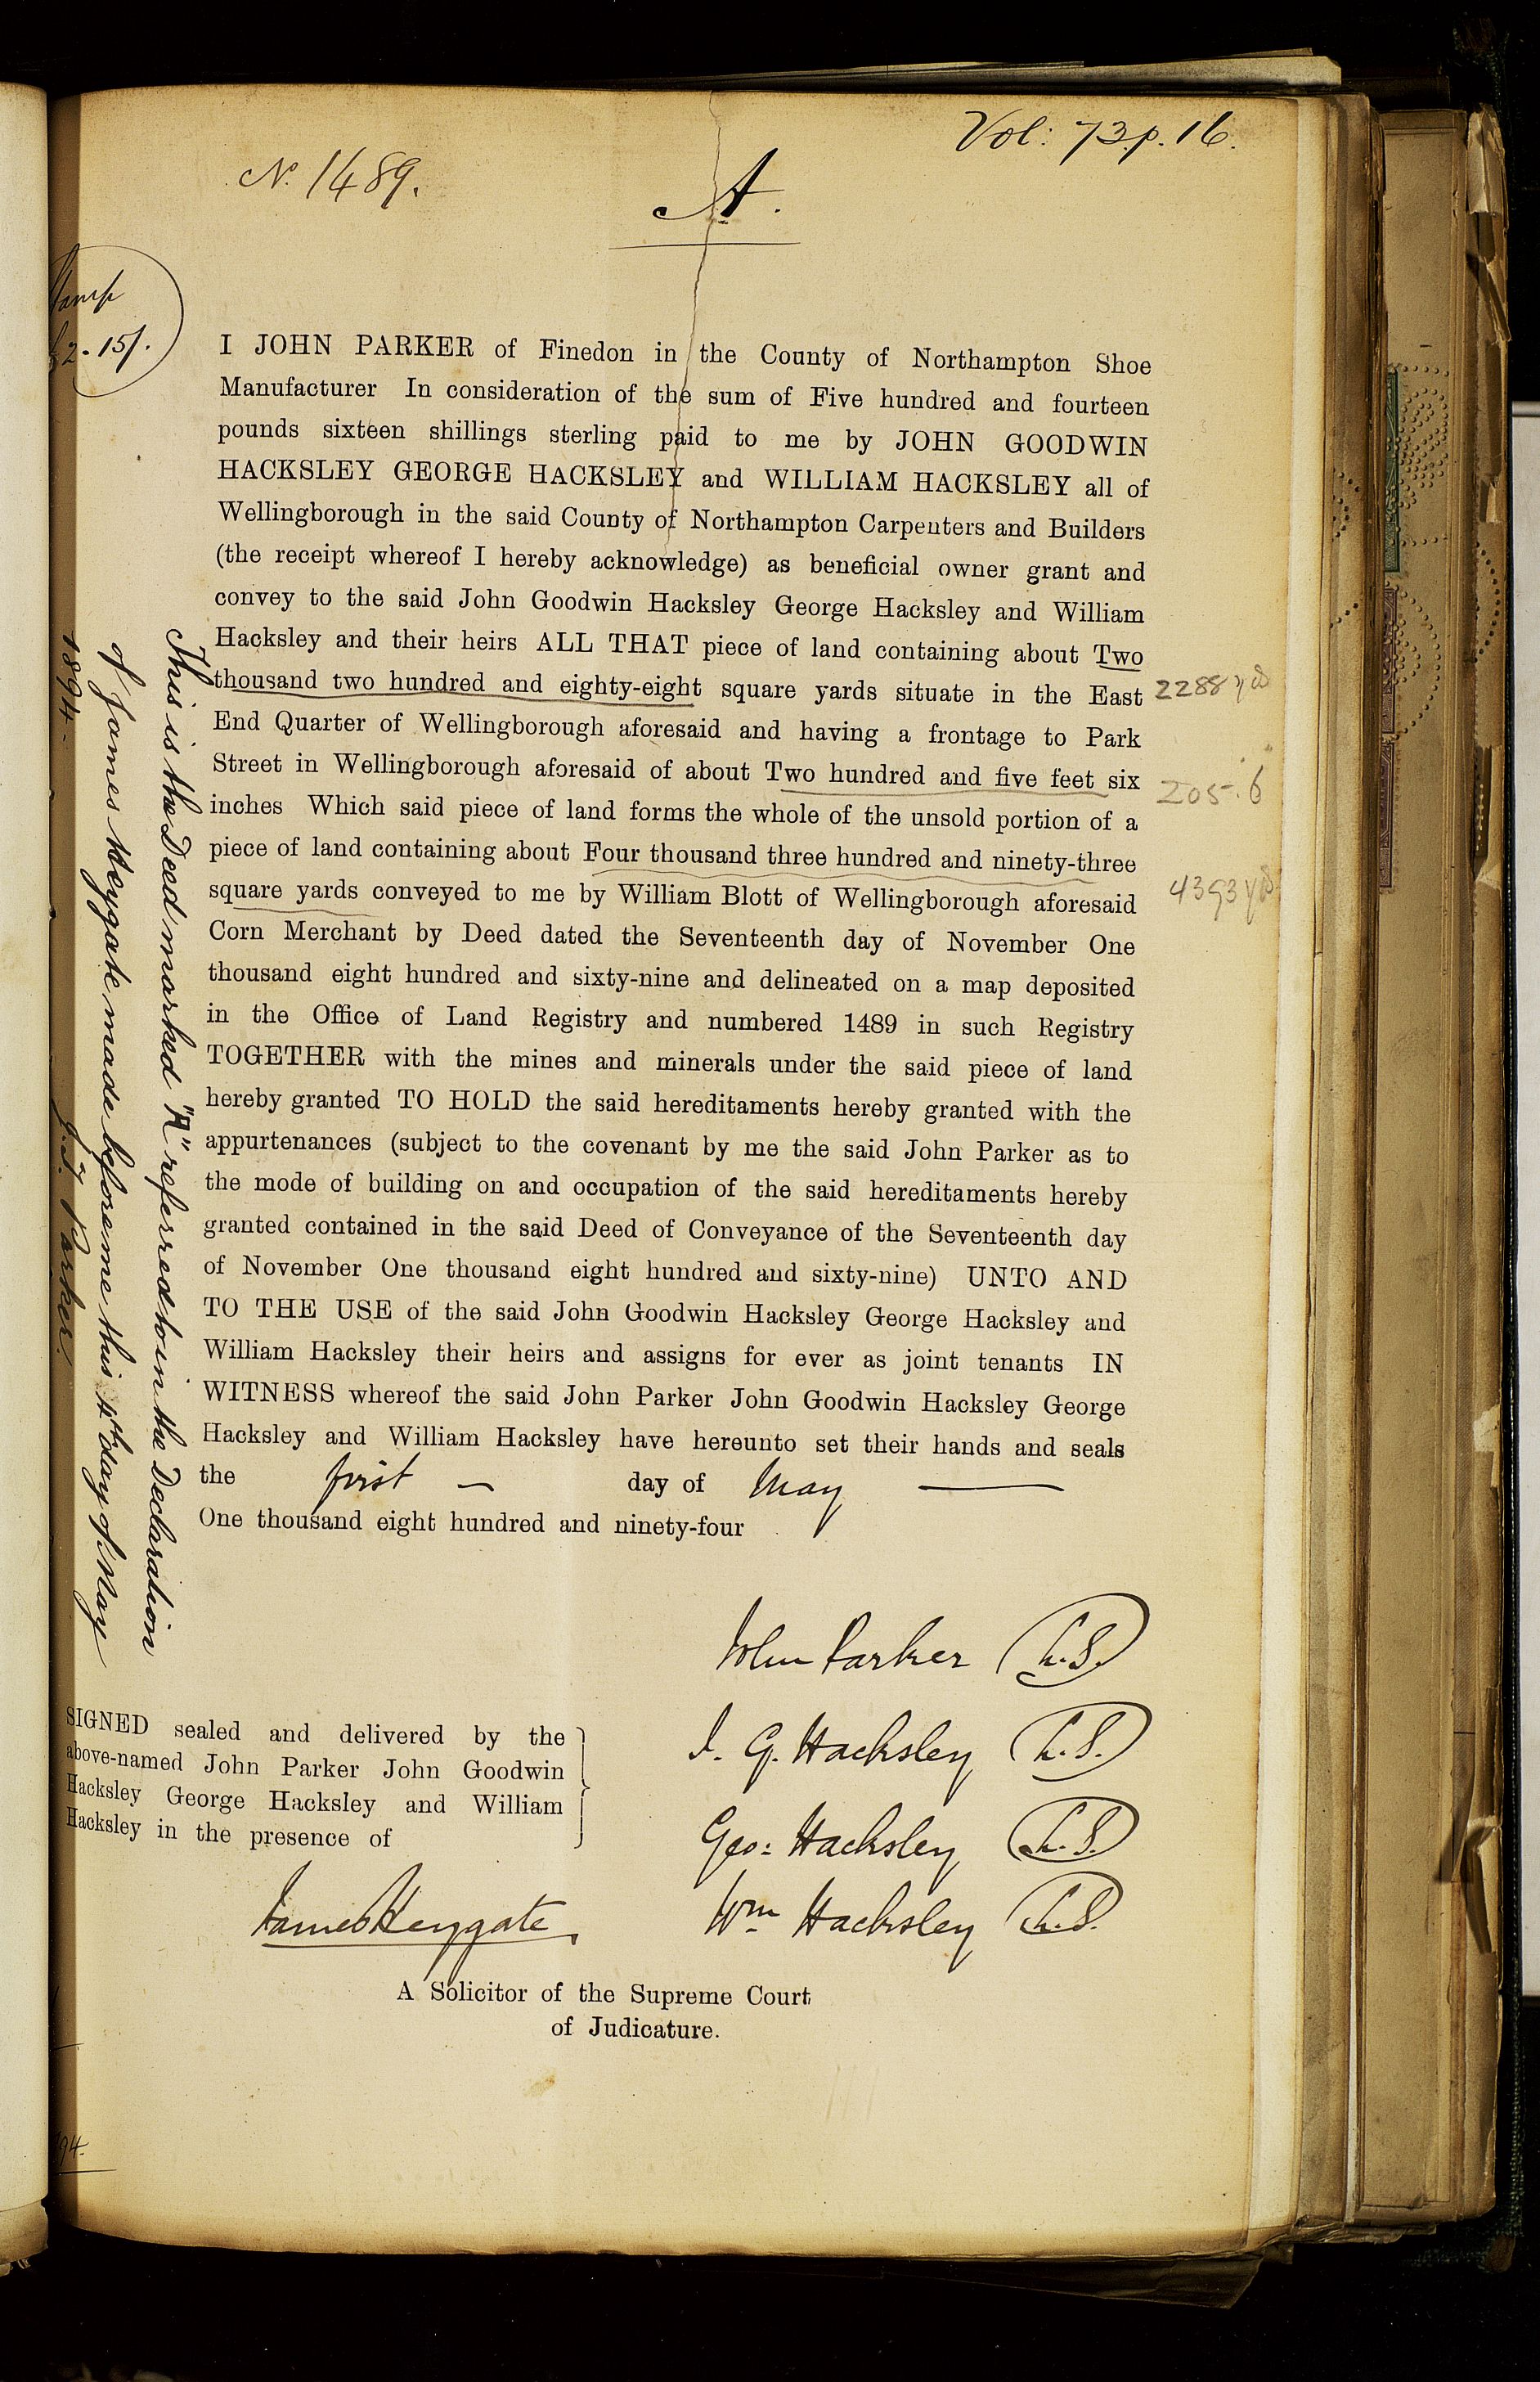 Vol: 73p. 16.
N. 1489.
A.
2 - 15/.
I JOHN PARKER of Finedon in the County of Northampton Shoe
Manufacturer In consideration of the sum of Five hundred and fourteen
pounds sixteen shillings sterling paid to me by JOHN GOODWIN
HACKSLEY GEORGE HACKSLEY and WILLIAM HACKSLEY all of
Wellingborough in the said County of Northampton Carpenters and Builders
(the receipt whereof I hereby acknowledge) as beneficial owner grant and
convey to the said John Goodwin Hacksley George Hacksley and William
Hacksley and their heirs ALL THAT piece of land containing about Two
thousand two hundred and eighty-eight square yards situate in the East
2288 yds
End Quarter of Wellingborough aforesaid and having a frontage to Park
Street in Wellingborough aforesaid of about Two hundred and five feet six
205. 6
inches Which said piece of land forms the whole of the unsold portion of a
piece of land containing about Four thousand three hundred and ninety-three
4393 yds
square yards conveyed to me by William Blott of Wellingborough aforesaid
Corn Merchant by Deed dated the Seventeenth day of November One
thousand eight hundred and sixty-nine and delineated on a map deposited
in the Office of Land Registry and numbered 1489 in such Registry
TOGETHER with the mines and minerals under the said piece of land
hereby granted TO HOLD the said hereditaments hereby granted with the
appurtenances (subject to the covenant by me the said John Parker as to
the mode of building on and occupation of the said hereditaments hereby
granted contained in the said Deed of Conveyance of the Seventeenth day
of November One thousand eight hundred and sixty-nine) UNTO AND
TO THE USE of the said John Goodwin Hacksley George Hacksley and
William Hacksley their heirs and assigns for ever as joint tenants IN
WITNESS whereof the said John Parker John Goodwin Hacksley George
Hacksley and William Hacksley have hereunto set their hands and seals
the first — day of May —
One thousand eight hundred and ninety-four
This is the Deed marked "A" referred to in the Declaration
of James Heygate made before me this 4th day of May
1894 - J. T. Parker.
John Parker L.S.
J. G. Hacksley L.S.
Geo: Hacksley L.S.
Wm Hacksley L.S.
SIGNED sealed and delivered by the
above-named John Parker John Goodwin
Hacksley George Hacksley and William
Hacksley in the presence of
James Heygate
A Solicitor of the Supreme Court
of Judicature.
94.